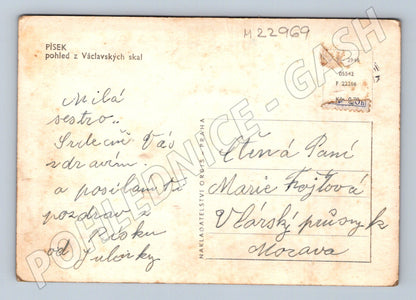 M 22969
PÍSEK
pohled z Václavských skal
Milá
sestro..
Srdečně Vás
zdravím
a posílám ti
pozdrav z
Písku
od
NAKLADATELSTVÍ ORBIS - PRAHA
Ctěná Paní
Marie Fojtová
Vlárský průsmyk
Morava
POHLEDNICE - GASH